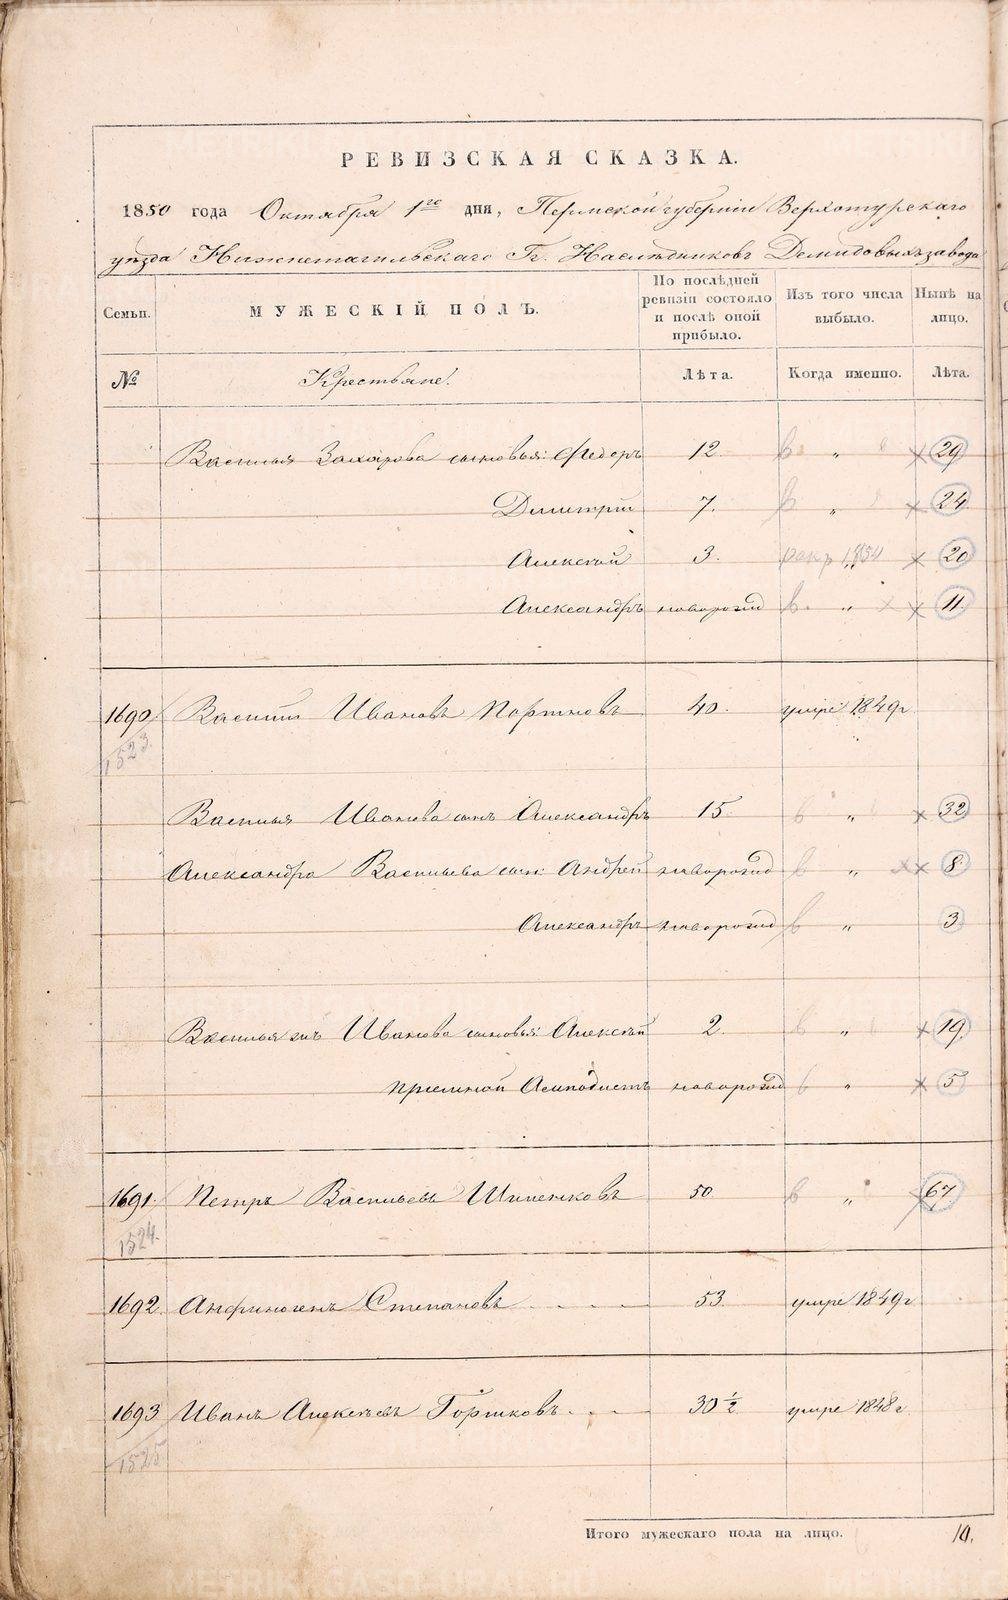 РЕВИЗСКАЯ СКАЗКА.
1850 года Октября 1го дня, Пермской губернии Верхотурскаго
уѣзда Нижнетагильскаго Гг. Наслѣдниковъ Демидовыхъ завода
Семьи. МУЖЕСКІЙ ПОЛЪ. По послѣдней ревизіи состояло и послѣ оной прибыло. Изъ того числа выбыло. Нынѣ на лицо.
№ Крестьяне. Лѣта. Когда именно. Лѣта.
Василья Захарова сыновья: Федоръ 12. в " × 29
Димитрій 7. в " × 24
Алексѣй 3. рекр 1854 " × 20
Александръ новорожд в. " × × 11
1690 Василій Ивановъ Портновъ 40. умре 1849г
1523.
Василья Иванова сынъ Александръ 15. в " × 32
Александра Васильева сын: Андрей новорожд в " ×× 8
Александръ новорожд в " 3
Василья Иванова сыновья: Алексѣй 2. в " × 19
пріемной новорожд в " × 5
1691. Петръ Васильевъ Шиленковъ 50 в " 67
1524.
1692. Анфиногенъ Степановъ 53. умре 1849г
1693 Иванъ Алексѣевъ Горшковъ 30 ½ умре 1848г
1525
Итого мужескаго пола на лицо. 10.
METRIKI.GASO-URAL.RU